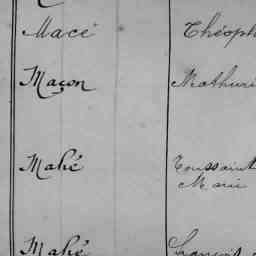 Macé Théoph
Maçon Mathuri
Mahé Toussaint
Marie
Mahé François